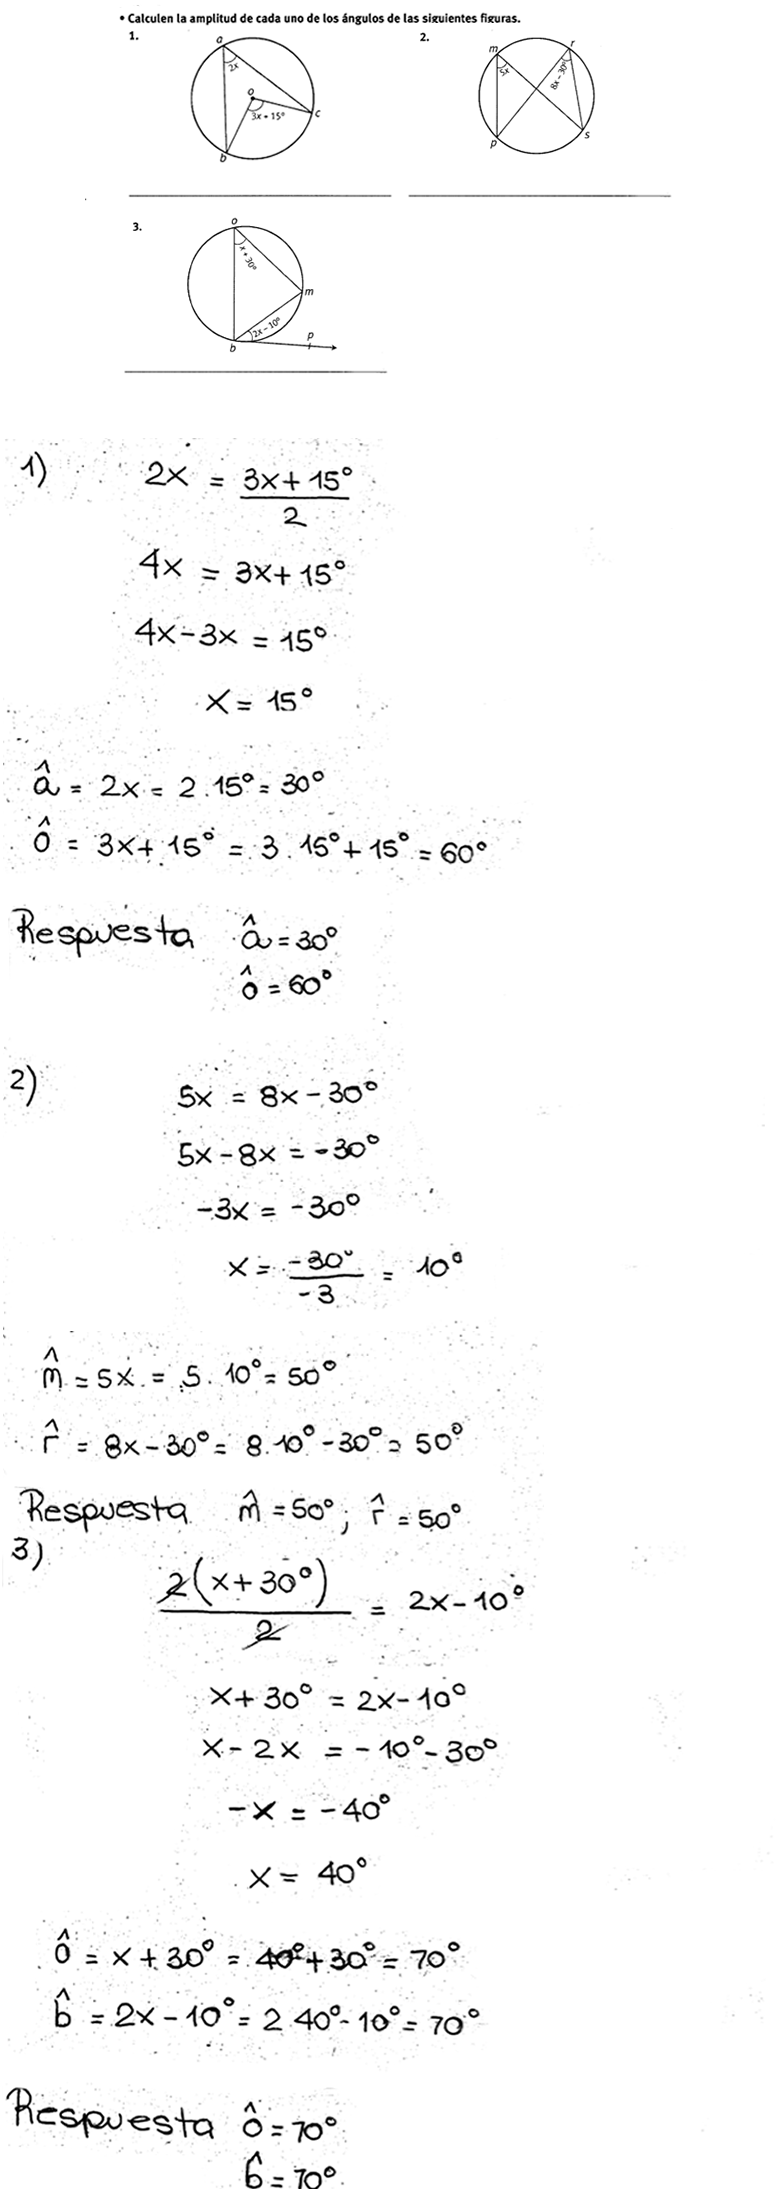 • Calculen la amplitud de cada uno de los ángulos de las siguientes figuras.
1.
a
2x
o
3x + 15°
c
b
2.
m
r
5x
8x – 30°
p
s
3.
o
x + 30°
m
2x – 10°
b
p
1)
2x = (3x + 15°)/2
4x = 3x + 15°
4x - 3x = 15°
x = 15°
â = 2x = 2 . 15° = 30°
ô = 3x + 15° = 3 . 15° + 15° = 60°
Respuesta â = 30°
ô = 60°
2)
5x = 8x - 30°
5x - 8x = -30°
-3x = -30°
x = -30°/-3 = 10°
m̂ = 5x = 5 . 10° = 50°
r̂ = 8x - 30° = 8 . 10° - 30° = 50°
Respuesta m̂ = 50° ; r̂ = 50°
3)
2(x + 30°)/2 = 2x - 10°
x + 30° = 2x - 10°
x - 2x = -10° - 30°
-x = -40°
x = 40°
ô = x + 30° = 40° + 30° = 70°
b̂ = 2x - 10° = 2 40° - 10° = 70°
Respuesta ô = 70°
b̂ = 70°